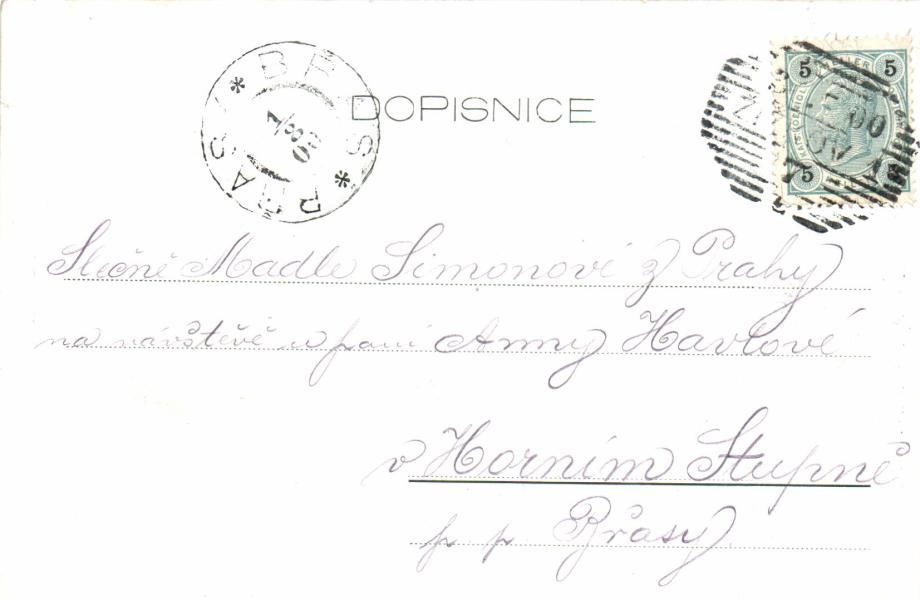 DOPISNICE
BRAS
5 5
5
Slečně Madle Simonové z Prahy
na návštěvě u paní Anny Havlové
v Horním Stupně
p p Břasy